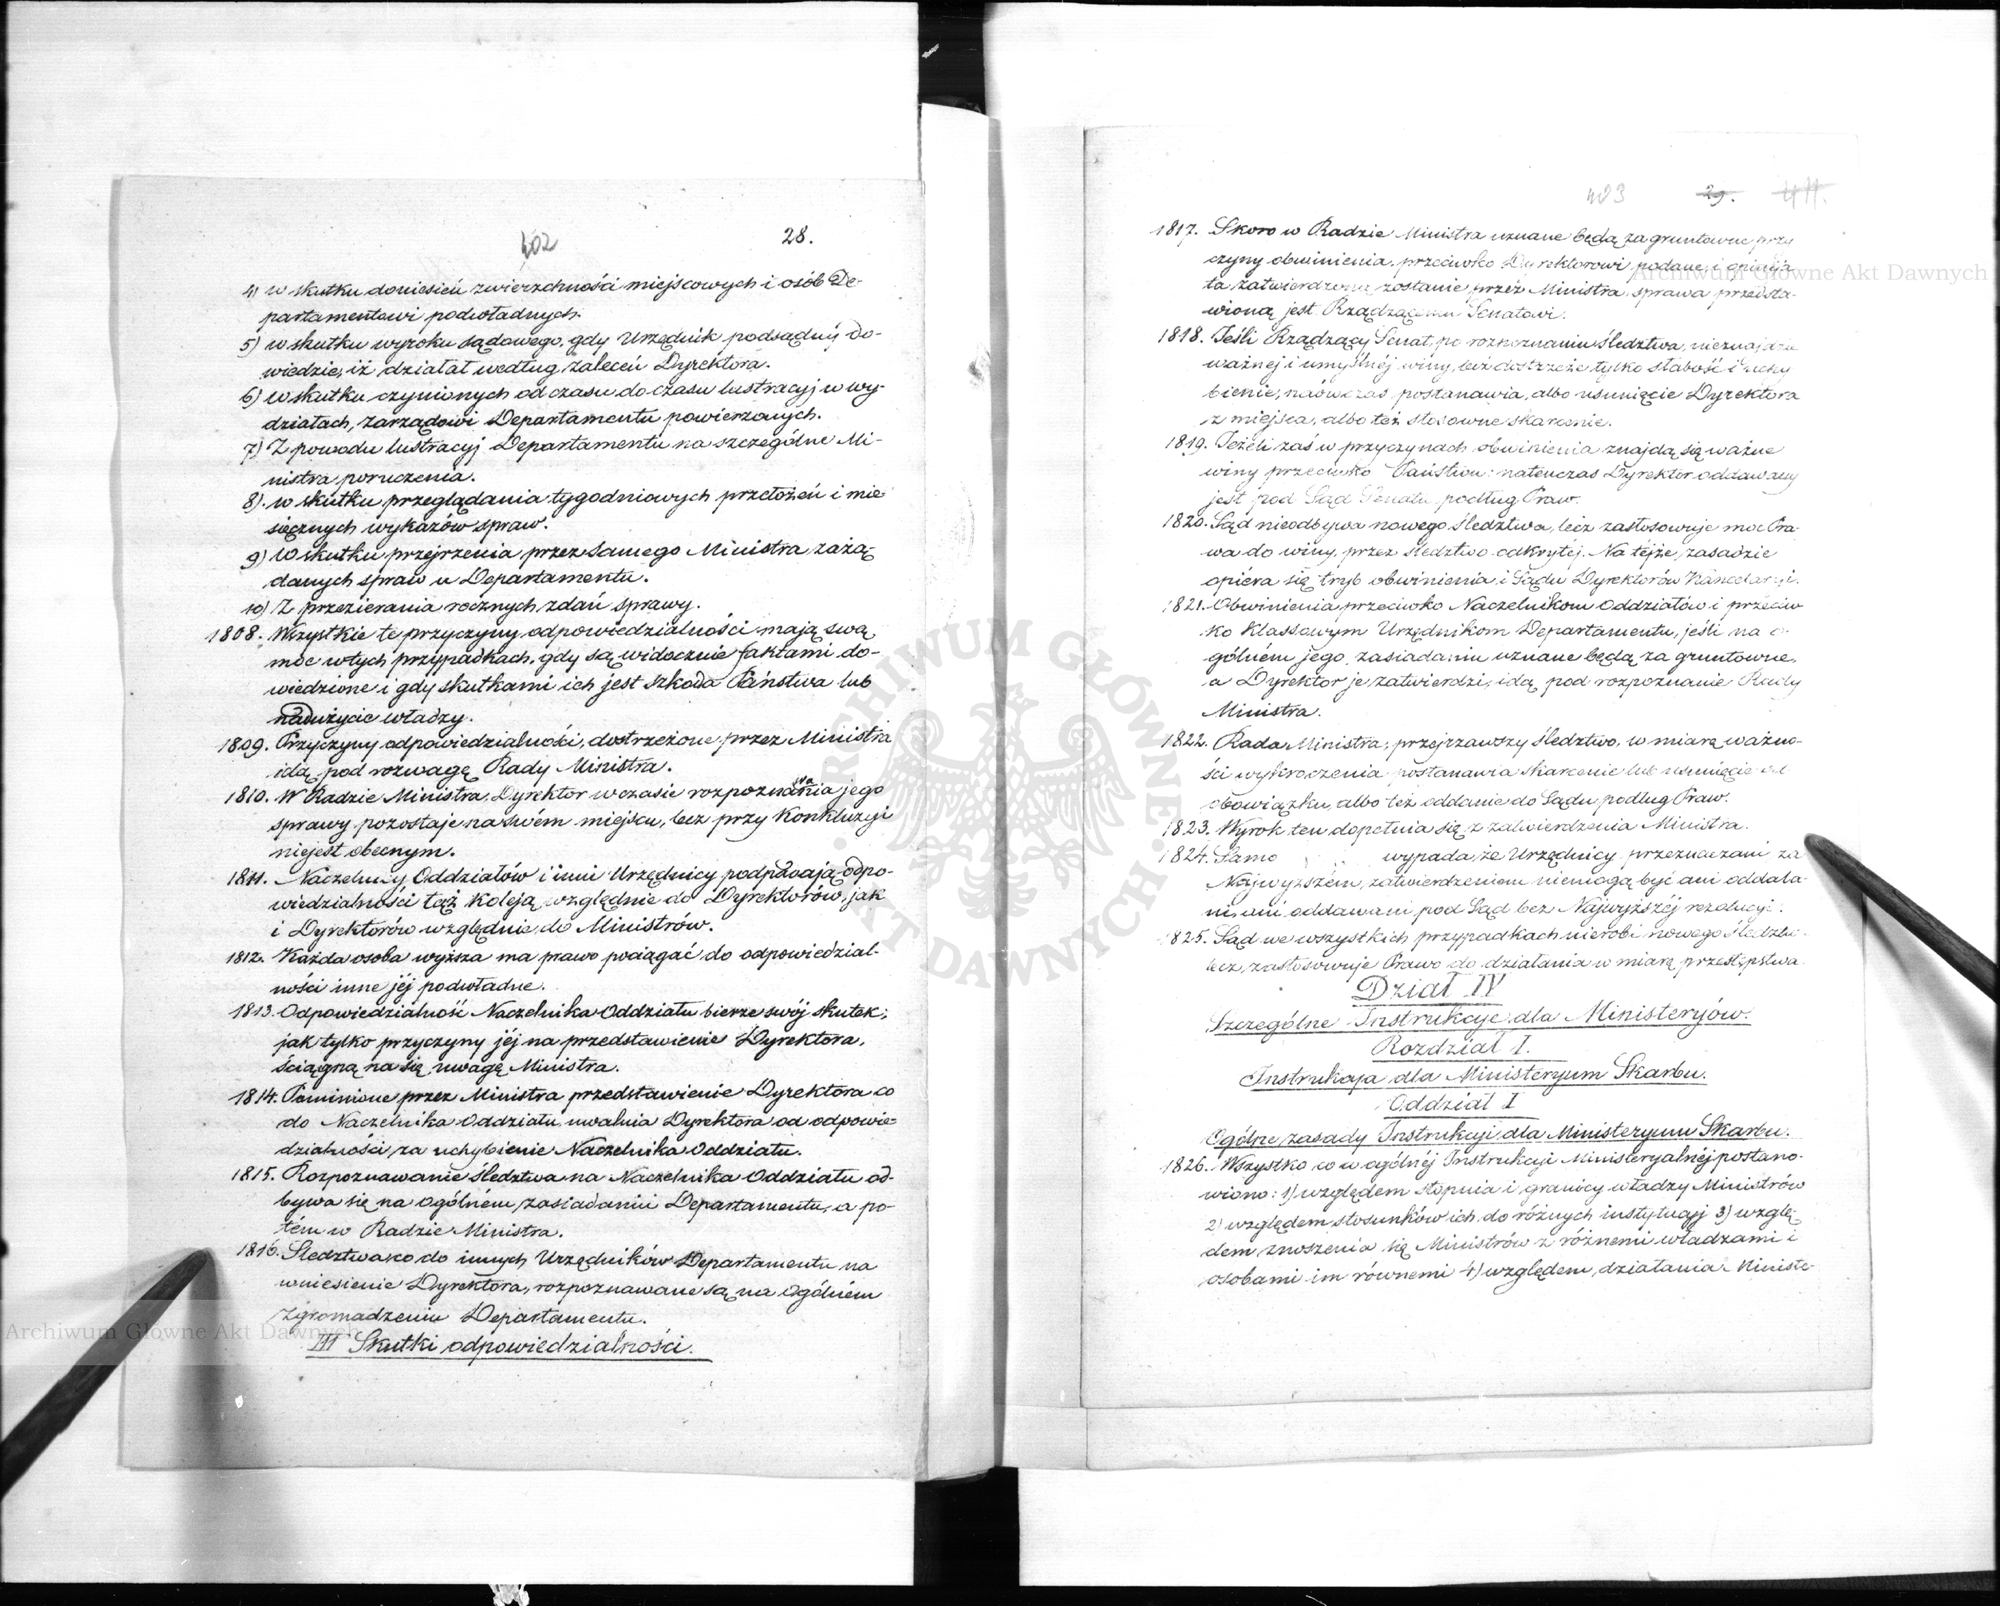 402
28.
4) w skutku doniesień zwierzchności miejscowych i osób De-
partamentowi podwładnych.
5) w skutku wyroku sądowego, gdy Urzędnik podsądny do-
wiedzie, iż działał według zaleceń Dyrektora.
6) w skutku czynionych od czasu do czasu lustracyj w wy-
działach, zarządowi Departamentu powierzonych.
7) Z powodu lustracyj Departamentu na szczególne Mi-
nistra poruczenia.
8) w skutku przeglądania tygodniowych przełożeń i mie
sięcznych wykazów spraw.
9) W skutku przejrzenia przez samego Ministra zażą-
danych spraw u Departamentu.
10) Z przezierania rocznych zdań sprawy.
1808. Wszystkie te przyczyny odpowiedzialności mają swą
moc w tych przypadkach, gdy są widocznie faktami do-
wiedzione i gdy skutkami ich jest szkoda Państwa lub
nadużycie władzy.
1809. Przyczyny odpowiedzialności, dostrzeżone przez Ministra
idą pod rozwagę Rady Ministra.
1810. W Radzie Ministra, Dyrektor w czasie rozpoznania jego
sprawy pozostaje na swém miejscu, lecz przy Konkluzyi
niejest obecnym.
1811. Naczelnicy Oddziałów i inni Urzędnicy podpadają odpo-
wiedzialności tąż Koleją względnie do Dyrektorów, jak
i Dyrektorów względnie do Ministrów.
1812. Każda osoba wyższa ma prawo pociągać do odpowiedzial-
ności inne jéj podwładne.
1813. Odpowiedzialność Naczelnika Oddziału bierze swój skutek,
jak tylko przyczyny jéj na przedstawienie Dyrektora,
ściągną na się uwagę Ministra.
1814. Pominione przez Ministra przedstawienie Dyrektora co
do Naczelnika Oddziału uwalnia Dyrektora od odpowie-
dzialności za uchybienie Naczelnika Oddziału.
1815. Rozpoznawanie śledztwa na Naczelnika Oddziału od-
bywa się na Ogólném zasiadaniu Departamentu, a po-
tém w Radzie Ministra.
1816. Śledztwa co do innych Urzędników Departamentu na
wniesienie Dyrektora, rozpoznawane są na Ogólném
Zgromadzeniu Departamentu.
III Skutki odpowiedzialności.
403
29.
1817. Skoro w Radzie Ministra uznane będą za gruntowne przy
czyny obwinienia, przeciwko Dyrektorowi podane, i opinija
ta zatwierdzoną zostanie przez Ministra, sprawa przedsta-
wioną jest Rządzącemu Senatowi.
1818. Jeśli Rządzący Senat, po rozpoznaniu śledztwa, nieznajdzie
ważnej i umyślnéj winy, lecz dostrzeże tylko słabość i uchy
bienie, naówczas postanawia, albo usunięcie Dyrektora
z miejsca, albo też stosowne skarcenie.
1819. Jeżeli zaś w przyczynach obwinienia znajdą się ważne
winy przeciwko Państwu: natenczas Dyrektor oddawany
jest pod Sąd Senatu podług Praw.
1820. Sąd nieodbywa nowego śledztwa, lecz zastosowuje moc Pra-
wa do winy, przez śledztwo odkrytéj. Na téjże zasadzie
opiéra się tryb obwinienia i Sądu Dyrektorów Kancelaryi.
1821. Obwinienia przeciwko Naczelnikom Oddziałów i przeciw
ko Klassowym Urzędnikom Departamentu, jeśli na o-
gólném jego zasiadaniu uznane będą za gruntowne,
a Dyrektor je zatwierdzi, idą pod rozpoznanie Rady
Ministra.
1822. Rada Ministra, przejrzawszy śledztwo, w miarę ważno-
ści wykroczenia postanawia skarcenie lub usunięcie od
obowiązku, albo też oddanie do Sądu podług Praw.
1823. Wyrok ten dopełnia się z zatwierdzenia Ministra.
1824. Samo wypada, że Urzędnicy przeznaczani za
Najwyższém zatwierdzeniem niemogą być ani oddala-
ni, ani oddawani pod Sąd bez Najwyższéj rezolucyi.
1825. Sąd we wszystkich przypadkach nierobi nowego śledztwa
lecz zastosowuje Prawo do działania w miarę przestępstwa
Dział IV
Szczególne Instrukcje dla Ministeryów.
Rozdział I.
Instrukcja dla Ministeryum Skarbu.
Oddział I
Ogólne zasady Instrukcji dla Ministeryum Skarbu.
1826. Wszystko co w ogólnéj Instrukcji Ministeryalnéj postano-
wiono: 1) względem stopnia i granicy władzy Ministrów
2) względem stosunków ich do różnych instytucyj 3) wzglę-
dem znoszenia się Ministrów z różnemi władzami i
osobami im równemi 4) względem działania Ministe-
Archiwum Główne Akt Dawnych
Archiwum Główne Akt Dawnych
ARCHIWUM GŁÓWNE AKT DAWNYCH